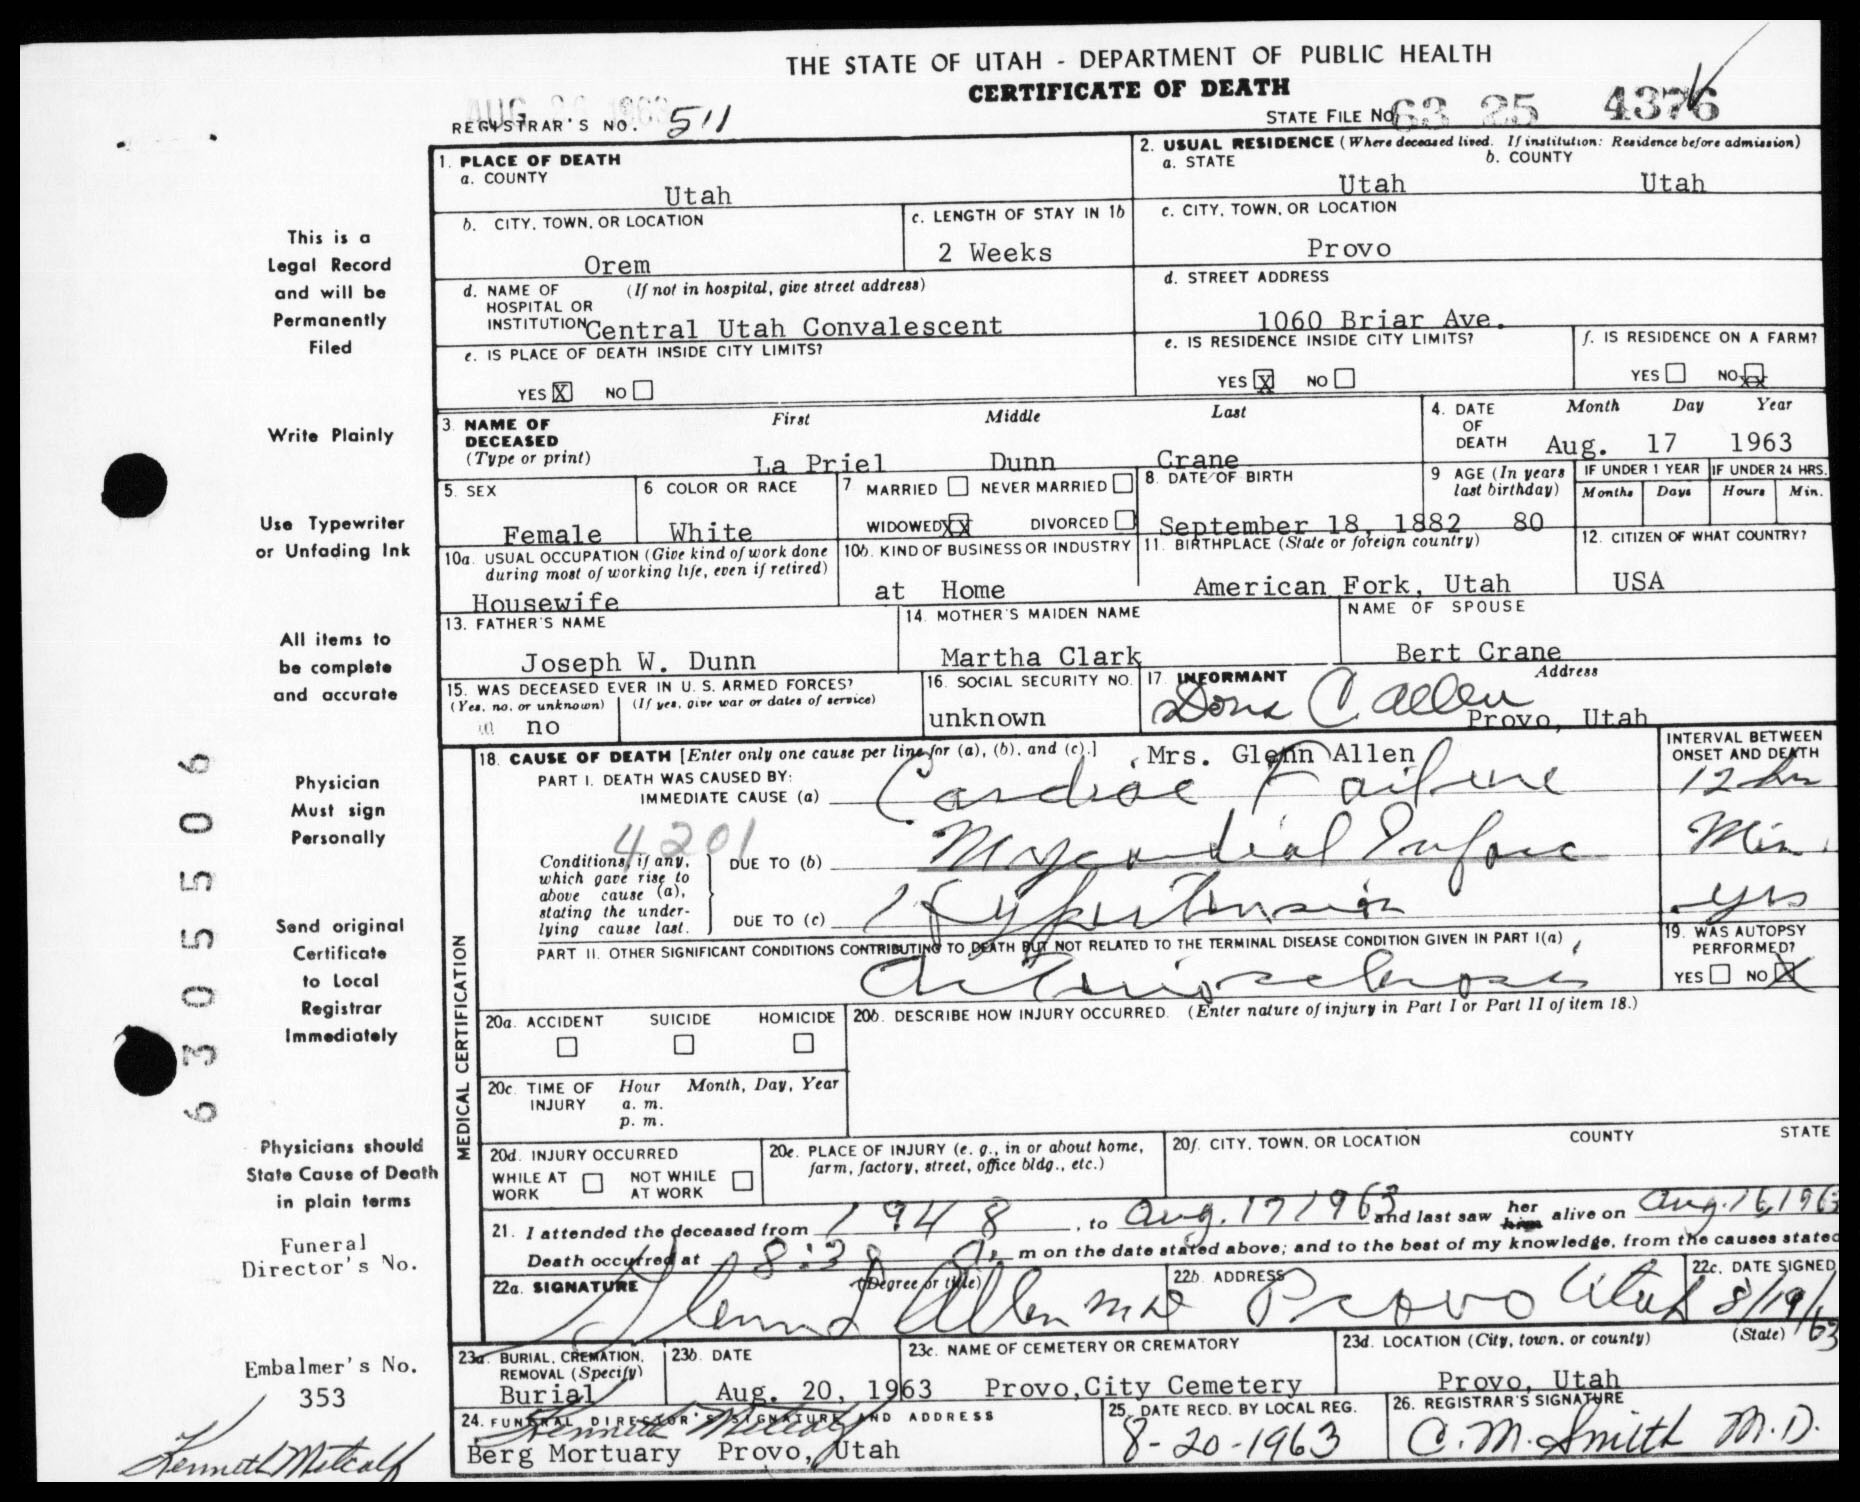 THE STATE OF UTAH - DEPARTMENT OF PUBLIC HEALTH
CERTIFICATE OF DEATH
AUG 26 1963
REGISTRAR'S NO. 511
STATE FILE NO. 63 25 4376
1. PLACE OF DEATH
a. COUNTY
Utah
2. USUAL RESIDENCE (Where deceased lived. If institution: Residence before admission)
a. STATE b. COUNTY
Utah Utah
b. CITY, TOWN, OR LOCATION
Orem
c. LENGTH OF STAY IN 1b
2 Weeks
c. CITY, TOWN, OR LOCATION
Provo
d. NAME OF (If not in hospital, give street address)
HOSPITAL OR
INSTITUTION Central Utah Convalescent
d. STREET ADDRESS
1060 Briar Ave.
e. IS PLACE OF DEATH INSIDE CITY LIMITS?
YES X NO
e. IS RESIDENCE INSIDE CITY LIMITS?
YES X NO
f. IS RESIDENCE ON A FARM?
YES NO XX
3. NAME OF
DECEASED
(Type or print)
First Middle Last
La Priel Dunn Crane
4. DATE
OF
DEATH
Month Day Year
Aug. 17 1963
5. SEX
Female
6 COLOR OR RACE
White
7 MARRIED NEVER MARRIED
WIDOWED XX DIVORCED
8. DATE OF BIRTH
September 18, 1882
9 AGE (In years
last birthday)
80
IF UNDER 1 YEAR
Months Days
IF UNDER 24 HRS.
Hours Min.
10a. USUAL OCCUPATION (Give kind of work done
during most of working life, even if retired)
Housewife
10b. KIND OF BUSINESS OR INDUSTRY
at Home
11. BIRTHPLACE (State or foreign country)
American Fork, Utah
12. CITIZEN OF WHAT COUNTRY?
USA
13. FATHER'S NAME
Joseph W. Dunn
14. MOTHER'S MAIDEN NAME
Martha Clark
NAME OF SPOUSE
Bert Crane
15. WAS DECEASED EVER IN U. S. ARMED FORCES?
(Yes, no, or unknown) (If yes, give war or dates of service)
no
16. SOCIAL SECURITY NO.
unknown
17 INFORMANT Address
Dona C. Allen
Provo, Utah
Mrs. Glenn Allen
18. CAUSE OF DEATH [Enter only one cause per line for (a), (b), and (c).]
INTERVAL BETWEEN
ONSET AND DEATH
PART I. DEATH WAS CAUSED BY:
IMMEDIATE CAUSE (a) Cardiac Failure 12 hrs
4201
Conditions, if any,
which gave rise to
above cause (a),
stating the under-
lying cause last.
DUE TO (b) Myocardial Infarc Min.
DUE TO (c) Hypertension yrs
PART II. OTHER SIGNIFICANT CONDITIONS CONTRIBUTING TO DEATH BUT NOT RELATED TO THE TERMINAL DISEASE CONDITION GIVEN IN PART I(a)
Arteriosclerosis
19. WAS AUTOPSY
PERFORMED?
YES NO X
20a. ACCIDENT SUICIDE HOMICIDE
20b. DESCRIBE HOW INJURY OCCURRED. (Enter nature of injury in Part I or Part II of item 18.)
20c. TIME OF Hour Month, Day, Year
INJURY a. m.
p. m.
20d. INJURY OCCURRED
WHILE AT NOT WHILE
WORK AT WORK
20e. PLACE OF INJURY (e. g., in or about home,
farm, factory, street, office bldg., etc.)
20f. CITY, TOWN, OR LOCATION COUNTY STATE
21. I attended the deceased from 1948, to Aug. 17 1963 and last saw her him alive on Aug. 16, 1963
Death occurred at 8:38 a. m on the date stated above; and to the best of my knowledge, from the causes stated
22a. SIGNATURE (Degree or title)
Glenn L Allen MD
22b. ADDRESS
Provo Utah
22c. DATE SIGNED
8/19/63
23a. BURIAL, CREMATION,
REMOVAL (Specify)
Burial
23b. DATE
Aug. 20, 1963
23c. NAME OF CEMETERY OR CREMATORY
Provo,City Cemetery
23d. LOCATION (City, town, or county) (State)
Provo, Utah
24. FUNERAL DIRECTOR'S SIGNATURE AND ADDRESS
Kenneth Metcalf
Berg Mortuary Provo, Utah
25. DATE RECD. BY LOCAL REG.
8-20-1963
26. REGISTRAR'S SIGNATURE
C. M. Smith M.D.
MEDICAL CERTIFICATION
This is a
Legal Record
and will be
Permanently
Filed
Write Plainly
Use Typewriter
or Unfading Ink
All items to
be complete
and accurate
Physician
Must sign
Personally
Send original
Certificate
to Local
Registrar
Immediately
Physicians should
State Cause of Death
in plain terms
Funeral
Director's No.
Embalmer's No.
353
Kenneth Metcalf
6305506